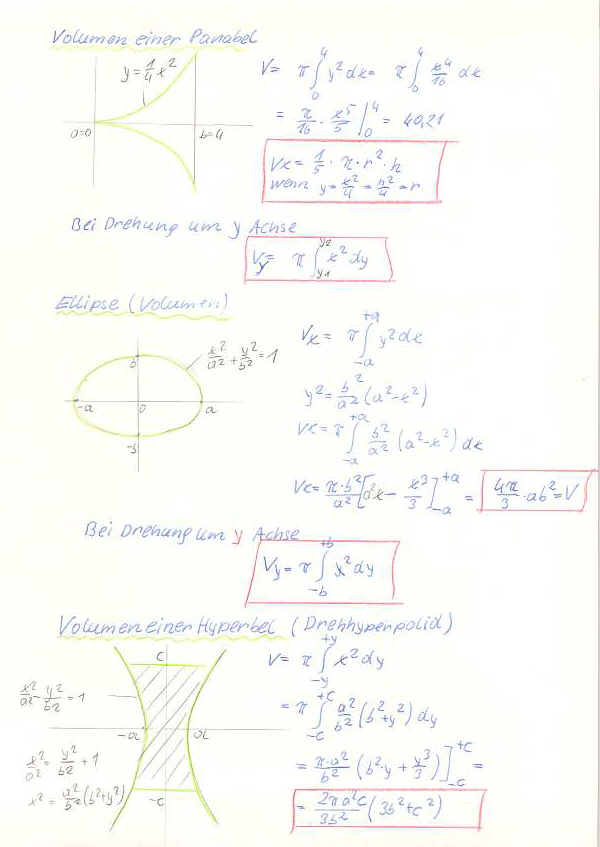 Volumen einer Parabel
y = 1/4 x²
a=0
b=4
V= π ∫₀⁴ y² dx = π ∫₀⁴ x⁴/16 dx
= π/16 · x⁵/5 |₀⁴ = 40,21
Vx = 1/5 · π · r² · h
wenn y = x²/4 = h²/4 = r
Bei Drehung um y Achse
Vy = π ∫_y1^y2 x² dy
Ellipse (Volumen)
x²/a² + y²/b² = 1
b
-a
0
a
-b
Vx = π ∫_-a^+a y² dx
y² = b²/a² (a²-x²)
Vx = π ∫_-a^+a b²/a² (a²-x²) dx
Vx = π·b²/a² [a²x - x³/3]_-a^+a = 4π/3 · ab² = V
Bei Drehung um y Achse
Vy = π ∫_-b^+b x² dy
Volumen einer Hyperbel (Drehhyperpolid)
x²/a² - y²/b² = 1
x²/a² = y²/b² + 1
x² = a²/b² (b²+y²)
c
-a
a
-c
V = π ∫_-y^+y x² dy
= π ∫_-c^+c a²/b² (b²+y²) dy
= π·a²/b² (b²·y + y³/3)]_-c^+c =
= 2πa²c/3b² (3b²+c²)